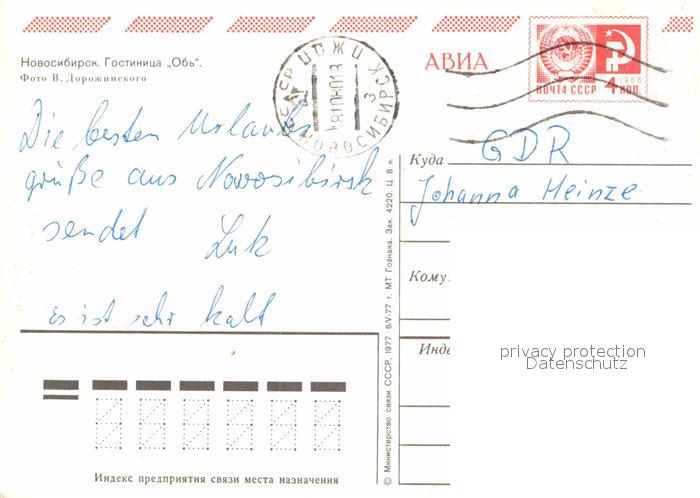 Новосибирск. Гостиница „Обь".
Фото В. Дорожинского
АВИА
1966
ПОЧТА СССР 4 КОП.
НОВОСИБИРСК
Die besten Urlaubs
grüße aus Nowosibirsk
sendet Luk
es ist sehr kalt
Куда GDR
Johanna Heinze
Кому
Инде
privacy protection
Datenschutz
Индекс предприятия связи места назначения
© Министерство связи СССР, 1977 6/V-77 г. МТ Гознака. Зак. 4220. Ц. 8 к.